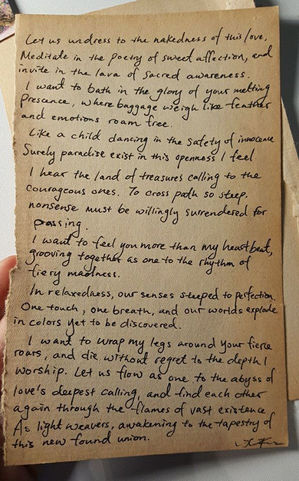 Let us undress to the nakedness of this love,
Meditate in the poetry of sweet affection, and
invite in the lava of sacred awareness.
I want to bath in the glory of your melting
Presence, where baggage weigh like feather
and emotions roam free.
Like a child dancing in the safety of innocence
Surely paradise exist in this openness I feel
I hear the land of treasures calling to the
courageous ones. To cross path so steep,
nonsense must be willingly surrendered for
passing.
I want to feel you more than my heartbeat,
grooving together as one to the rhythm of
fiery madness.
In relaxedness, our senses steeped to perfection.
One touch, one breath, and our worlds explode
in colors yet to be discovered.
I want to wrap my legs around your fierce
roars, and die without regret to the depth I
worship. Let us flow as one to the abyss of
love's deepest calling, and find each other
again through the flames of vast existence
As light weavers, awakening to the tapestry of
this new found union.